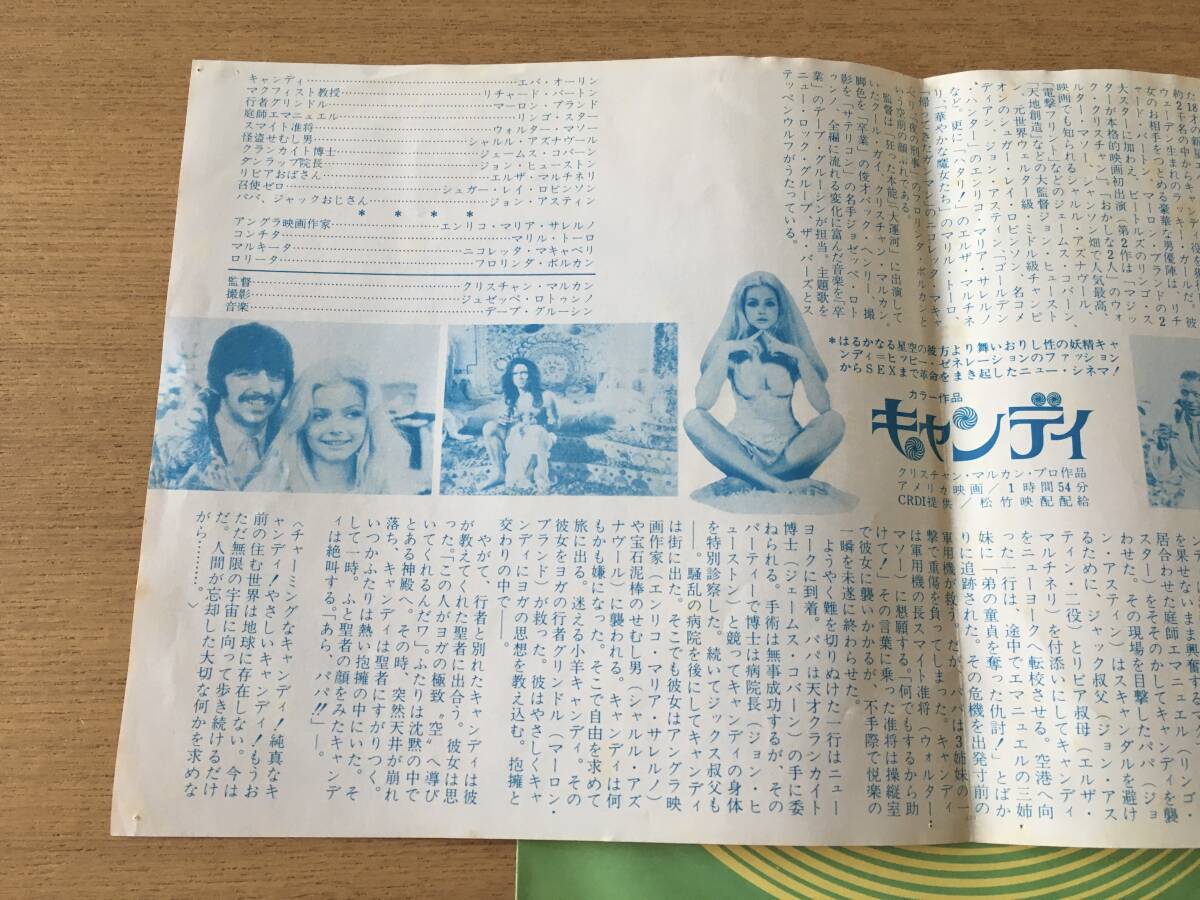 キャンディ……………エバ・オーリン
マクフィスト教授……………リチャード・バートン
行者グリンドル……………マーロン・ブランド
庭師エマニュエル……………リンゴ・スター
スマイト准将……………ウォルター・マソー
怪盗せむし男……………シャルル・アズナヴール
クランカイト博士……………ジェームス・コバーン
ダンラップ院長……………ジョン・ヒューストン
リビアおばさん……………エルザ・マルチネリ
召使ゼロ……………シュガー・レイ・ロビンソン
パパ、ジャックおじさん……………ジョン・アスティン
* * * *
アングラ映画作家……………エンリコ・マリア・サレルノ
コンチタ……………マリル・トーロ
マルキータ……………ニコレッタ・マキャベリ
ロリータ……………フロリンダ・ボルカン
監督……………クリスチャン・マルカン
撮影……………ジュゼッペ・ロトゥンノ
音楽……………デーブ・グルーシン
約2千名の中からキャ
ウェーデン生まれのラッキー・ガールだ。
女のお相手をつとめる豪華な男優陣は、リチ
ャード・バートン、マーロン・ブランドの2
大スターに加わえ、ビートルズのリンゴ・ス
ターが本格的映画初出演(第2作は「マジッ
ク・クリスチャン」)。「おかしな2人」のウォ
ルター・マソー、シャンソン畑で人気最高、
映画でも知られるシャルル・アズナヴール、
「電撃フリント」などのジェームス・コバーン、
「天地創造」などの大監督ジョン・ヒュースト
ン、元世界ウェルター級・ミドル級チャンピ
オンのシュガー・レイ・ロビンソン、名コメ
ディアン、ジョン・アスティン、「ゴールデン
・ハンター」のエンリコ・マリア・サレルノ
など。更に「ハタリ!」のエルザ・マルチネ
リ、「華やかな魔女たち」のマリル・トーロ、
いう空前の顔ぶれである。
監督は「狂った本能」「大運河」に出演して
いたクール・ガイ、クリスチャン・マルカン。
脚色を「卒業」の俊才バック・ヘンリー、撮
影を「サテリコン」の名手ジョゼッペ・ロト
ゥンノ、全編に流れる変化に富んだ音楽を「卒
業」のデーブ・グルーシンが担当。主題歌を
ニュー・ロック・グループ、ザ・バーズとス
テッペンウルフがうたっている。
*はるかなる星空の彼方より舞いおりし性の妖精キャ
ンディ=ヒッピー・ゼネレーションのファッション
からSEXまで革命をまき起したニュー・シネマ!
カラー作品
キャンディ
クリスチャン・マルカン・プロ作品
アメリカ映画/1時間54分
CRDI提供/松竹映配配給
を果せないまま興奮
居合わせた庭師エマニュエル(リンゴ・
スター)をそそのかしてキャンディを襲
わせた。その現場を目撃したパパ(ジョ
ン・アスティン)はスキャンダルを避け
るために、ジャック叔父(ジョン・アス
ティン、二役)とリビア叔母(エルザ・
マルチネリ)を付添いにしてキャンディ
をニューヨークへ転校させる。空港へ向
った一行は、途中でエマニュエルの三姉
妹に「弟の童貞を奪った仇討!」とばか
りに追跡された。その危機を出発寸前の
軍用機が救う。だが、パパは3姉妹の一
撃で重傷を負ってしまった。キャンディ
は軍用機の長スマイト准将(ウォルター・
マソー)に懇願する。「何でもするから助
けて!」その言葉に乗った准将は操縦室
で彼女に襲いかかるが、不手際で悦楽の
一瞬を未遂に終わらせた。
ようやく難を切りぬけた一行はニュー
ヨークに到着。パパは天才クランカイト
博士(ジェームス・コバーン)の手に委
ねられる。手術は無事成功するが、その
パーティーで博士は病院長(ジョン・ヒ
ューストン)と競ってキャンディの身体
を特別診察した。続いてジャックス叔父も
――。騒乱の病院を後にしてキャンディ
は街に出た。そこでも彼女はアングラ映
画作家(エンリコ・マリア・サレルノ)
や宝石泥棒のせむし男(シャルル・アズ
ナヴール)に襲われる。キャンディは何
もかも嫌になった。そこで自由を求めて
旅に出る。迷える小羊キャンディ。その
彼女をヨガの行者グリンドル(マーロン・
ブランド)が救った。彼はやさしくキャ
ンディにヨガの思想を教え込む。抱擁と
交わりの中で――
やがて、行者と別れたキャンディは彼
が教えてくれた聖者に出合う。彼女は思
った。「この人がヨガの極致〝空〟へ導び
いてくれるんだワ」。ふたりは沈黙の中で
とある神殿へ。その時、突然天井が崩れ
落ち、キャンディは聖者にすがりつく。
いつかふたりは熱い抱擁の中にいた。そ
して一時。ふと聖者の顔をみたキャンデ
ィは絶叫する。「あら、パパ!!」――。
〈チャーミングなキャンディ!純真なキ
ャンディ!やさしいキャンディ!もうお
前の住む世界は地球に存在しない。今は
ただ無限の宇宙に向って歩き続けるだけ
だ。人間が忘却した大切な何かを求めな
がら……………〉